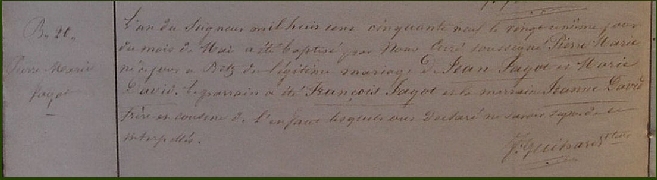 B. 20.
Pierre Marie
Sagot
L'an du Seigneur mil huit cent cinquante neuf le vingt unième jour
du mois de Mai a été baptisé par Nous Curé soussigné Pierre Marie
né à jour à Betz du légitime mariage de Jean Sagot et Marie
David. Le parrain a été François Sagot et la marraine Jeanne David
frère et cousine de l'enfant lesquels ont déclaré ne savoir signer de ce
interpellés.